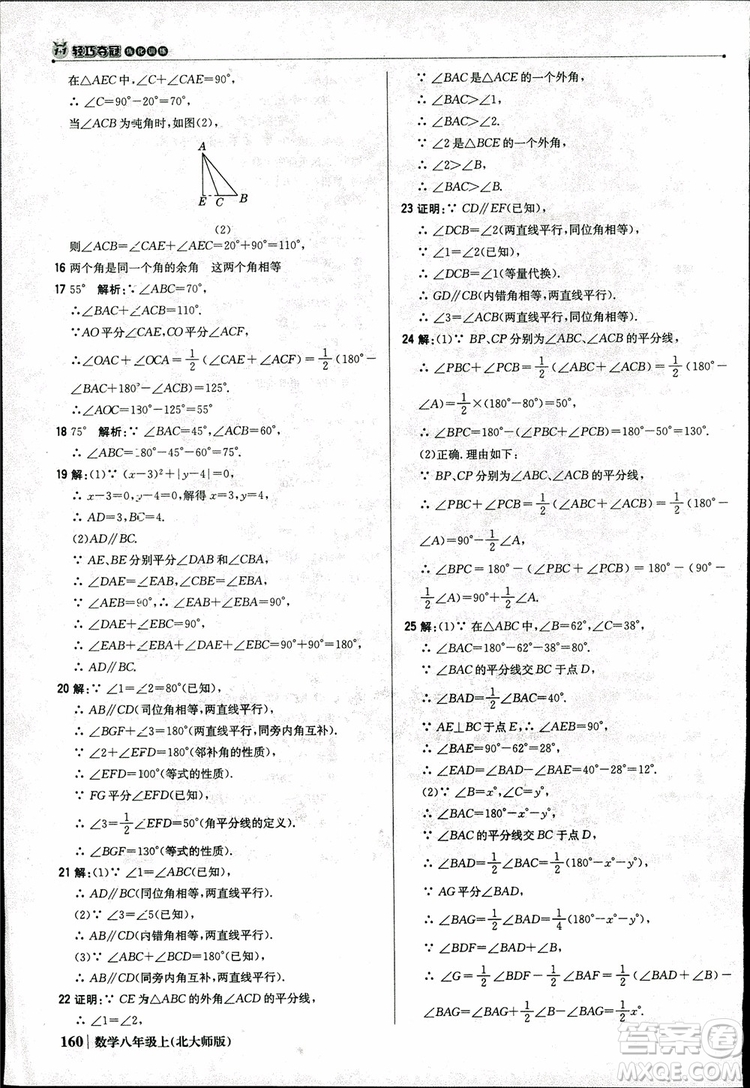 1+1 轻巧夺冠 优化训练
在△AEC中,∠C+∠CAE=90°,
∴ ∠C=90°-20°=70°,
当∠ACB为钝角时,如图(2),
A
E C B
(2)
则∠ACB=∠CAE+∠AEC=20°+90°=110°,
16 两个角是同一个角的余角 这两个角相等
17 55° 解析:∵∠ABC=70°,
∴∠BAC+∠ACB=110°.
∵AO平分∠CAE,CO平分∠ACF,
∴∠OAC+∠OCA=1/2(∠CAE+∠ACF)=1/2(180°-
∠BAC+180°-∠ACB)=125°.
∴∠AOC=180°-125°=55°
18 75° 解析:∵∠BAC=45°,∠ACB=60°,
∴∠ABC=180°-60°-45°=75°.
19 解:(1)∵ (x-3)²+|y-4|=0,
∴ x-3=0,y-4=0,解得 x=3,y=4.
∴ AD=3,BC=4.
(2)AD∥BC.
∵ AE、BE分别平分∠DAB和∠CBA,
∴ ∠DAE=∠EAB,∠CBE=∠EBA,
∵ ∠AEB=90°,∴ ∠EAB+∠EBA=90°,
∴ ∠DAE+∠EBC=90°,
∴ ∠EAB+∠EBA+∠DAE+∠EBC=90°+90°=180°.
∴ AD∥BC.
20 解:∵ ∠1=∠2=80°(已知),
∴ AB∥CD(同位角相等,两直线平行),
∴ ∠BGF+∠3=180°(两直线平行,同旁内角互补).
∵ ∠2+∠EFD=180°(邻补角的性质),
∴ ∠EFD=100°(等式的性质).
∵ FG平分∠EFD(已知),
∴ ∠3=1/2∠EFD=50°(角平分线的定义).
∴ ∠BGF=130°(等式的性质).
21 解:(1)∵ ∠1=∠2(已知),
∴ AB∥CD(同位角相等,两直线平行).
(2)∵ ∠3=∠5(已知),
∴ AB∥CD(内错角相等,两直线平行).
(3)∵ ∠ABC+∠BCD=180°(已知),
∴ AB∥CD(同旁内角互补,两直线平行).
22 证明:∵ CE为△ABC的外角∠ACD的平分线,
∴ ∠1=∠2.
160 数学八年级上(北大师版)
∵ ∠BAC是△ACE的一个外角,
∴ ∠BAC>∠1,
∴ ∠BAC>∠2.
∵ ∠2是△BCE的一个外角,
∴ ∠2>∠B,
∴ ∠BAC>∠B.
23 证明:∵ CD∥EF(已知),
∴ ∠DCB=∠2(两直线平行,同位角相等),
∵ ∠1=∠2(已知),
∴ ∠DCB=∠1(等量代换).
∴ GD∥CB(内错角相等,两直线平行).
∴ ∠3=∠ACB(两直线平行,同位角相等).
24 解:(1)∵ BP、CP分别为∠ABC、∠ACB的平分线,
∴ ∠PBC+∠PCB=1/2(∠ABC+∠ACB)=1/2(180°-
∠A)=1/2×(180°-80°)=50°.
∴ ∠BPC=180°-(∠PBC+∠PCB)=180°-50°=130°.
(2)正确. 理由如下:
∵ BP、CP分别为∠ABC、∠ACB的平分线,
∴ ∠PBC+∠PCB=1/2(∠ABC+∠ACB)=1/2(180°-
∠A)=90°-1/2∠A.
∴ ∠BPC=180°-(∠PBC+∠PCB)=180°-(90°-
1/2∠A)=90°+1/2∠A.
25 解:(1)∵ 在△ABC中,∠B=62°,∠C=38°,
∴ ∠BAC=180°-62°-38°=80°.
∵ ∠BAC的平分线交BC于点D,
∴ ∠BAD=1/2∠BAC=40°.
∵ AE⊥BC于点E,∴ ∠AEB=90°,
∴ ∠BAE=90°-62°=28°,
∴ ∠EAD=∠BAD-∠BAE=40°-28°=12°.
(2)∵ ∠B=x°,∠C=y°,
∴ ∠BAC=180°-x°-y°.
∵ ∠BAC的平分线交BC于点D,
∴ ∠BAD=1/2∠BAC=1/2(180°-x°-y°).
∵ AG平分∠BAD,
∴ ∠BAG=1/2∠BAD=1/4(180°-x°-y°).
∵ ∠BDF=∠BAD+∠B,
∴ ∠G=1/2∠BDF-1/2∠BAF=1/2(∠BAD+∠B)-
∠BAG=∠BAG+1/2x°-∠BAG=1/2x°.
答案圈
MXQE.COM